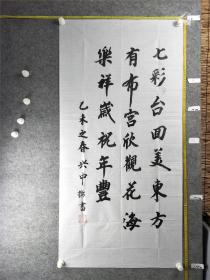 七彩台回美東方
有布宫欣觀花海
樂祥歲祝年豐
乙未之春 興中 撰書